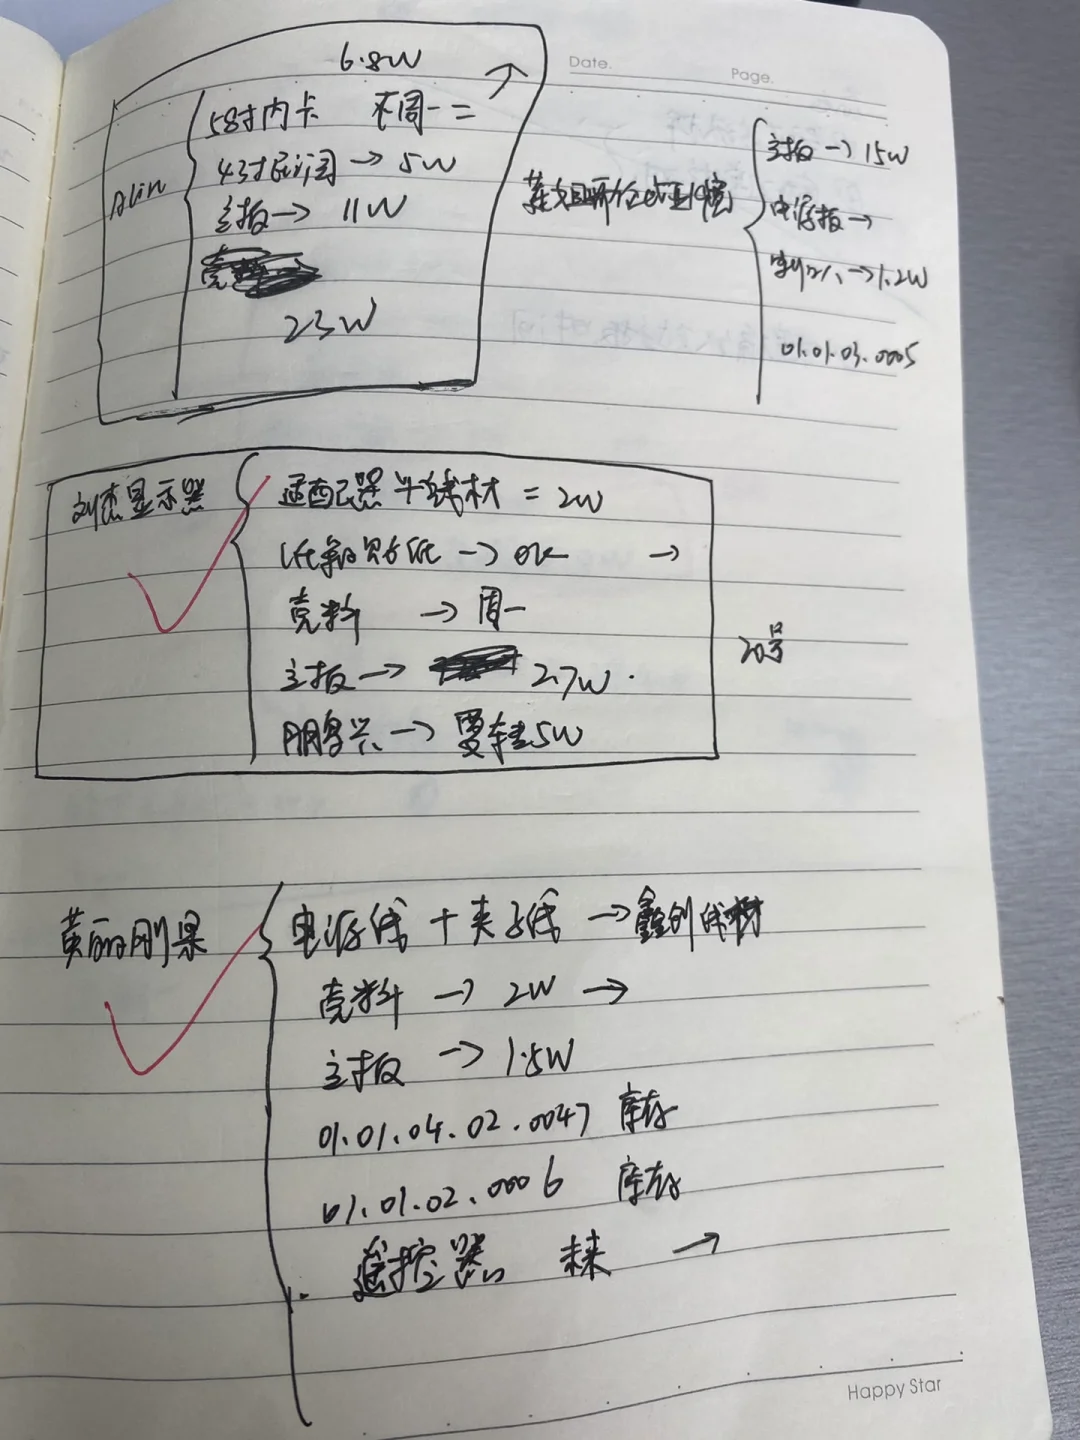 Date.
Page.
6.8W
Alin
58寸内卡 下周一二
43寸 → 5W
主板 → 11W
23W
主板 → 15W
电源板 →
→ 1.2W
01.01.03.0005
刘杰显示器
适配器 + 线材 = 2W
→ OK →
壳料 → 周一
主板 → 2.7W
→ 要转5W
20号
黄丽刚果
电源线 + 夹子线 → 鑫创线材
壳料 → 2W →
主板 → 1.5W
01.01.04.02.0047 库存
01.01.02.0006 库存
遥控器 未来 →
Happy Star